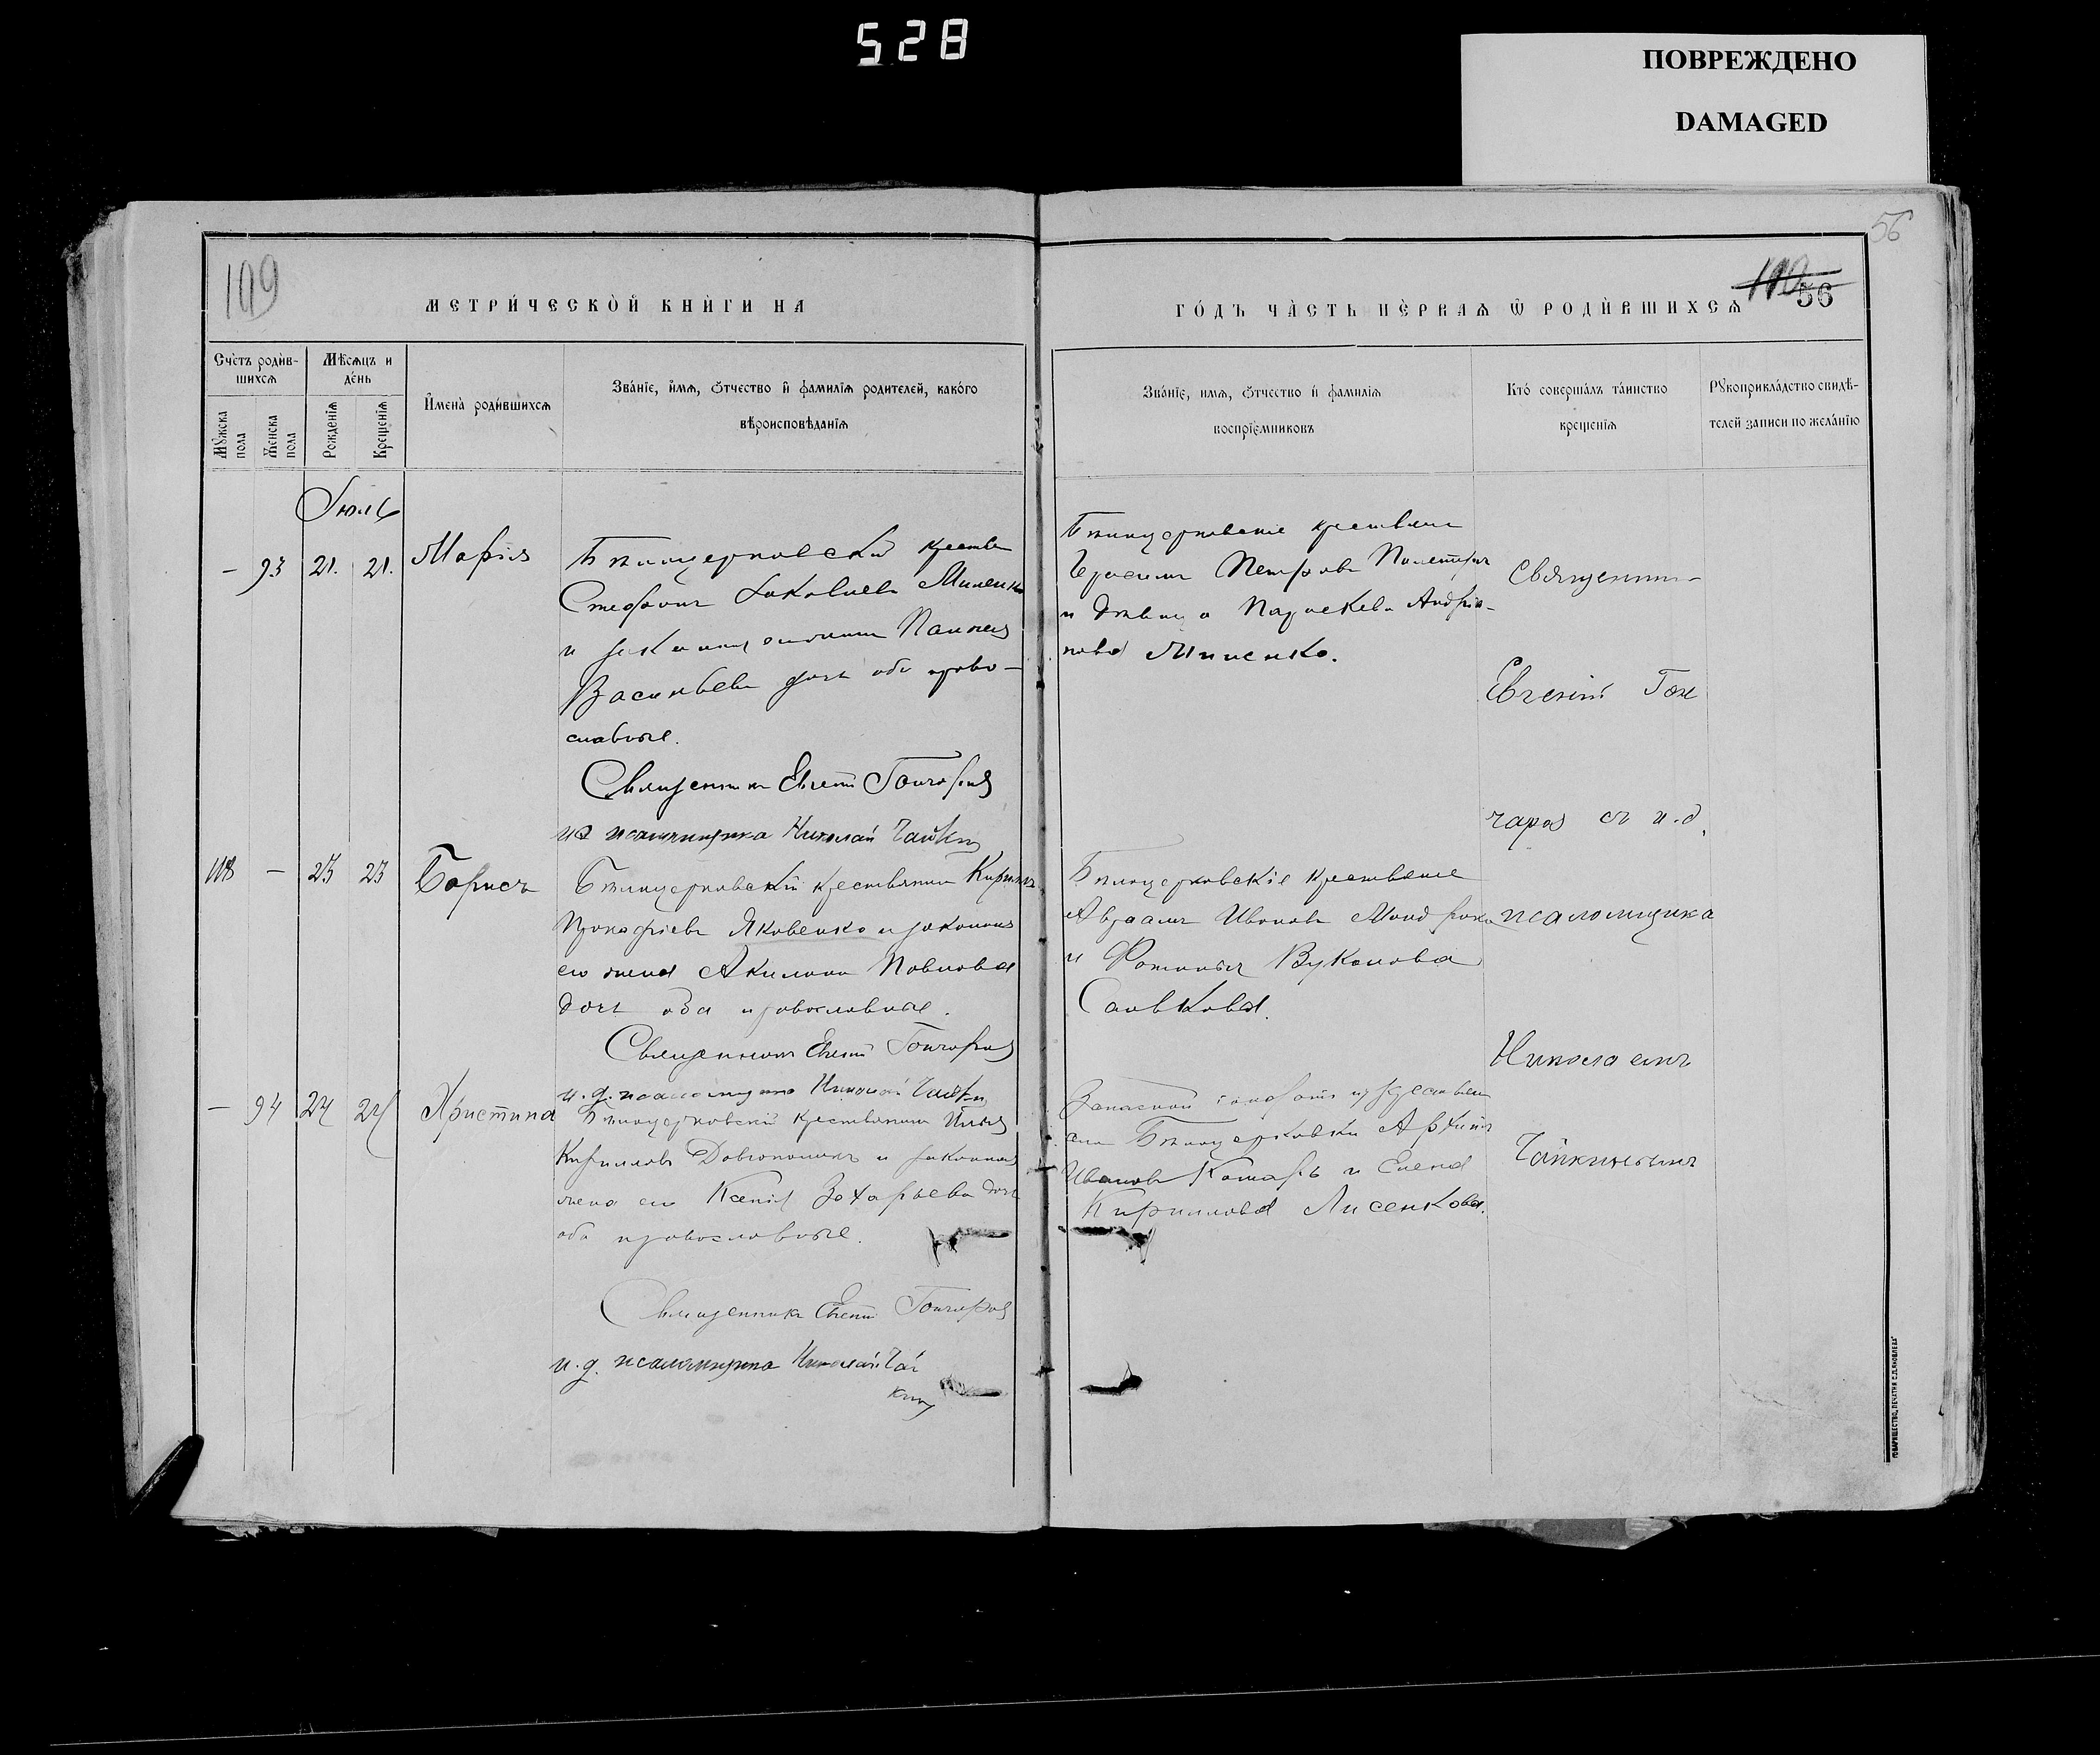 528
ПОВРЕЖДЕНО
DAMAGED
56
109
110
56
МЕТРИ́ЧЕСКОЙ КНИ́ГИ НА
ГО́ДЪ ЧА́СТЬ ПЕ́РВАѦ Ѡ҆ РОДИ́ВШИХСѦ
Сче́тъ роди́в-
шихсѧ
Мѣ́сѧцъ и
де́нь
И҆мена̀ роди́вшихсѧ
Зва́нїе, и҆́мѧ, ѻ҆́тчество и҆ фами́лїѧ роди́телей, како́го
вѣроисповѣ́данїѧ
Мꙋ́жска
пола
Же́нска
пола
Рожде́нїѧ
Креще́нїѧ
Зва́нїе, имѧ, ѻ҆́тчество и҆ фами́лїѧ
воспрїе́мниковъ
Кто́ соверша́лъ та́инство
креще́нїѧ
Рꙋкоприкла́дство свидѣ́-
телей записи по жела́нїю
Іюль
- 93 21. 21. Марія
Бѣлоцерковскій
Стефанъ Яковлевъ
и законная Пелагея
Васильева дочь оба право-
славные.
Священникъ Евгеній Гончаровъ
псаломщика Николай Чайкинъ
Бѣлоцерковскіе крестьяне
Герасимъ Петровъ
и дѣвица Параскева Андріа-
нова Миненко.
Священни-
Евгеній Гон
чаровъ съ и.д.
псаломщика
Николаемъ
Чайкинымъ
118 - 23 23 Борисъ
Бѣлоцерковскій крестьянинъ Кириллъ
Прокофіевъ Яковенко и законная
его жена Акилина Павлова
дочь оба православные.
Священникъ Евгеній Гончаровъ
и.д. псаломщика Николай Чайкинъ
Бѣлоцерковскіе крестьяне
Авраамъ Ивановъ
и Фотинья Вуколова
Савкова.
- 94 24 24 Христина
Бѣлоцерковскій крестьянинъ Илья
Кирилловъ и законная
жена его Ксенія Захарьева дочь
оба православные.
Священникъ Евгеній Гончаровъ
и.д. псаломщика Николай Чай
кинъ
Запасной
Бѣлоцерковки Архипъ
Ивановъ Комарь и Елена
Кириллова Лисенкова.
ТОВАРИЩЕСТВО, ПЕЧАТНЯ С.П. ЯКОВЛЕВА